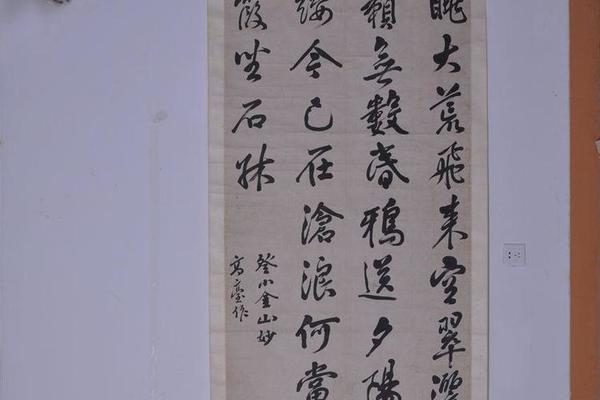 眺大荒飛來空翠灑
無數昏鴉送夕陽
纓今已在滄浪何當
霞坐石牀
登小金山妙
高臺作